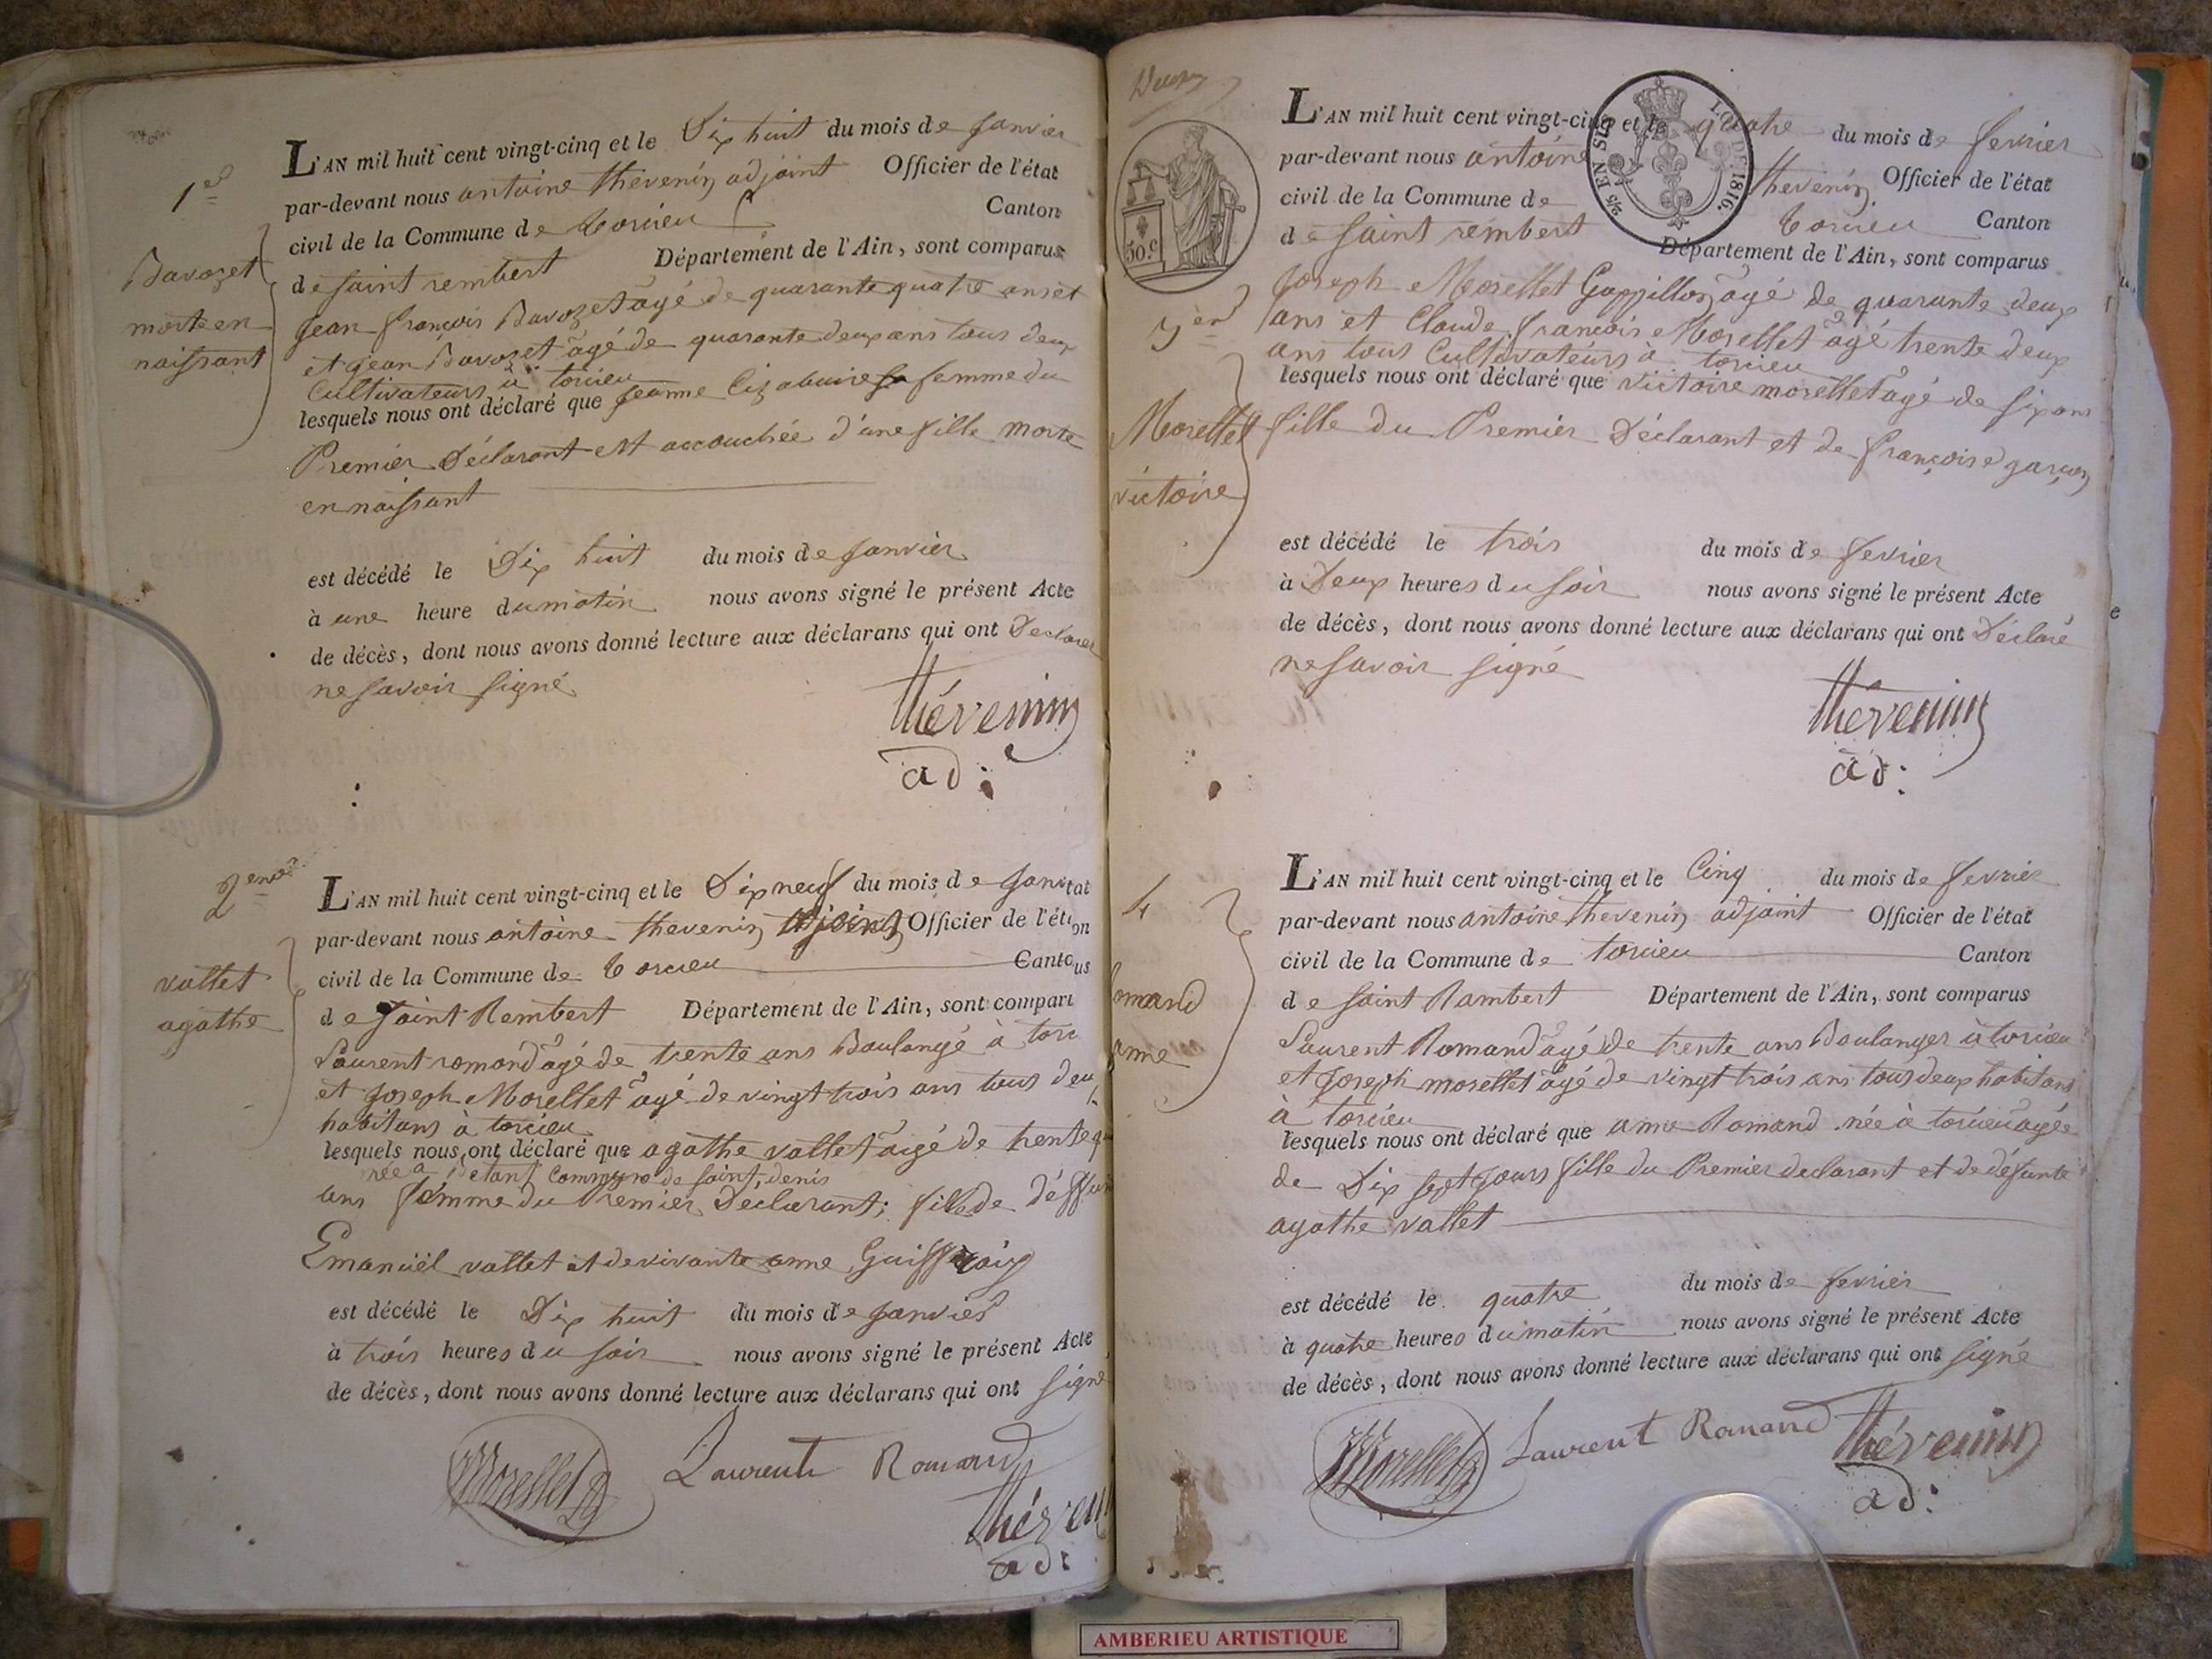 1er
Davozet
morte en
naissant
L'AN mil huit cent vingt-cinq et le Dix huit du mois de janvier
par-devant nous antoine thevenin adjoint Officier de l'état
civil de la Commune de torcieu Canton
de saint rembert Département de l'Ain, sont comparus
jean françois Davozet âgé de quarante quatre ans et
et jean Davozet âgé de quarante deux ans tous deux
Cultivateurs à torcieu
lesquels nous ont déclaré que jeanne femme du
Premier Déclarant est accouchée d'une fille morte
en naissant
est décédé le Dix huit du mois de janvier
à une heure du matin nous avons signé le présent Acte
de décès, dont nous avons donné lecture aux déclarans qui ont Declarer
ne savoir signé
thévenin
ad:
2eme
vallet
agathe
L'AN mil huit cent vingt-cinq et le Dix neuf du mois de janv
par-devant nous antoine thevenin adjoint Officier de l'état
civil de la Commune de torcieu Canton
de saint Rembert Département de l'Ain, sont comparus
Laurent romand âgé de trente ans Boulangé à torc
et joseph Morellet âgé de vingt trois ans tous deux
habitans à torcieu
lesquels nous ont déclaré que agathe vallet aigé de trente
née a Commune de saint denis
ans femme du Premier Declarant; fille de
Emanuël vallet et de vivante anne
est décédé le Dix huit du mois de janvier
à trois heures du soir nous avons signé le présent Acte
de décès, dont nous avons donné lecture aux déclarans qui ont signé
Morellet Laurent Romand
théven
ad:
50.c
2/5 EN SUS
LOI DE 1816.
3em
Morellet
victoire
L'AN mil huit cent vingt-cinq et le quatre du mois de fevrier
par-devant nous antoine thevenin Officier de l'état
civil de la Commune de torcieu Canton
de saint rembert Département de l'Ain, sont comparus
joseph Morellet âgé de quarante deux
ans et Claude françois Morellet âgé trente deux
ans tous Cultivateurs à torcieu
lesquels nous ont déclaré que victoire morellet âgé de six ans
fille du Premier Déclarant et de françoise garçon
est décédé le trois du mois de fevrier
à Deux heures du soir nous avons signé le présent Acte
de décès, dont nous avons donné lecture aux déclarans qui ont Déclaré
ne savoir signé
thevenin
ad:
4
omand
anne
L'AN mil huit cent vingt-cinq et le Cinq du mois de fevrier
par-devant nous antoine thevenin adjoint Officier de l'état
civil de la Commune de torcieu Canton
de saint Rambert Département de l'Ain, sont comparus
Laurent Romand âgé de trente ans Boulanger à torcieu
et joseph morellet âgé de vingt trois ans tous deux habitans
à torcieu
lesquels nous ont déclaré que anne Romand née à torcieu agée
de Dix sept jours fille du Premier declarant et de défunte
agathe vallet
est décédé le quatre du mois de fevrier
à quatre heures du matin nous avons signé le présent Acte
de décès, dont nous avons donné lecture aux déclarans qui ont signé
Morellet Laurent Romand thévenin
ad:
AMBERIEU ARTISTIQUE